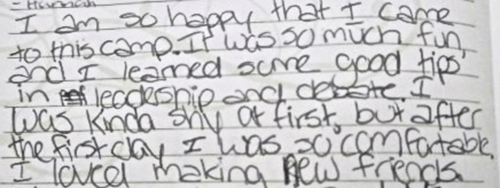 - Hannah
I am so happy that I came
to this camp. It was so much fun
and I learned some good tips
in leadership and debate I
was kinda shy at first, but after
the first day I was so comfortable.
I loved making new friends.